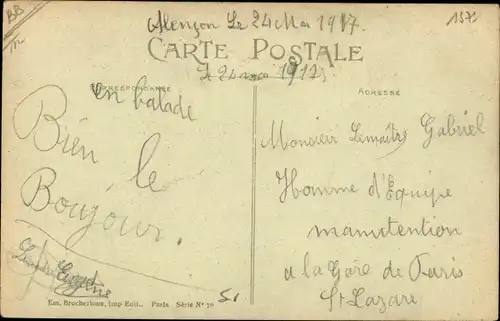 BB
1572
Alençon Le 24 Mai 1917.
CARTE POSTALE
CORRESPONDANCE
ADRESSE
en balade
Bien le
Boujour.
Monsieur Lemaître Gabriel
Homme d'Equipe
manutention
a la Gare de Paris
St Lazare
Em. Brocherioux, Imp-Edit., Paris Série N° 70
51